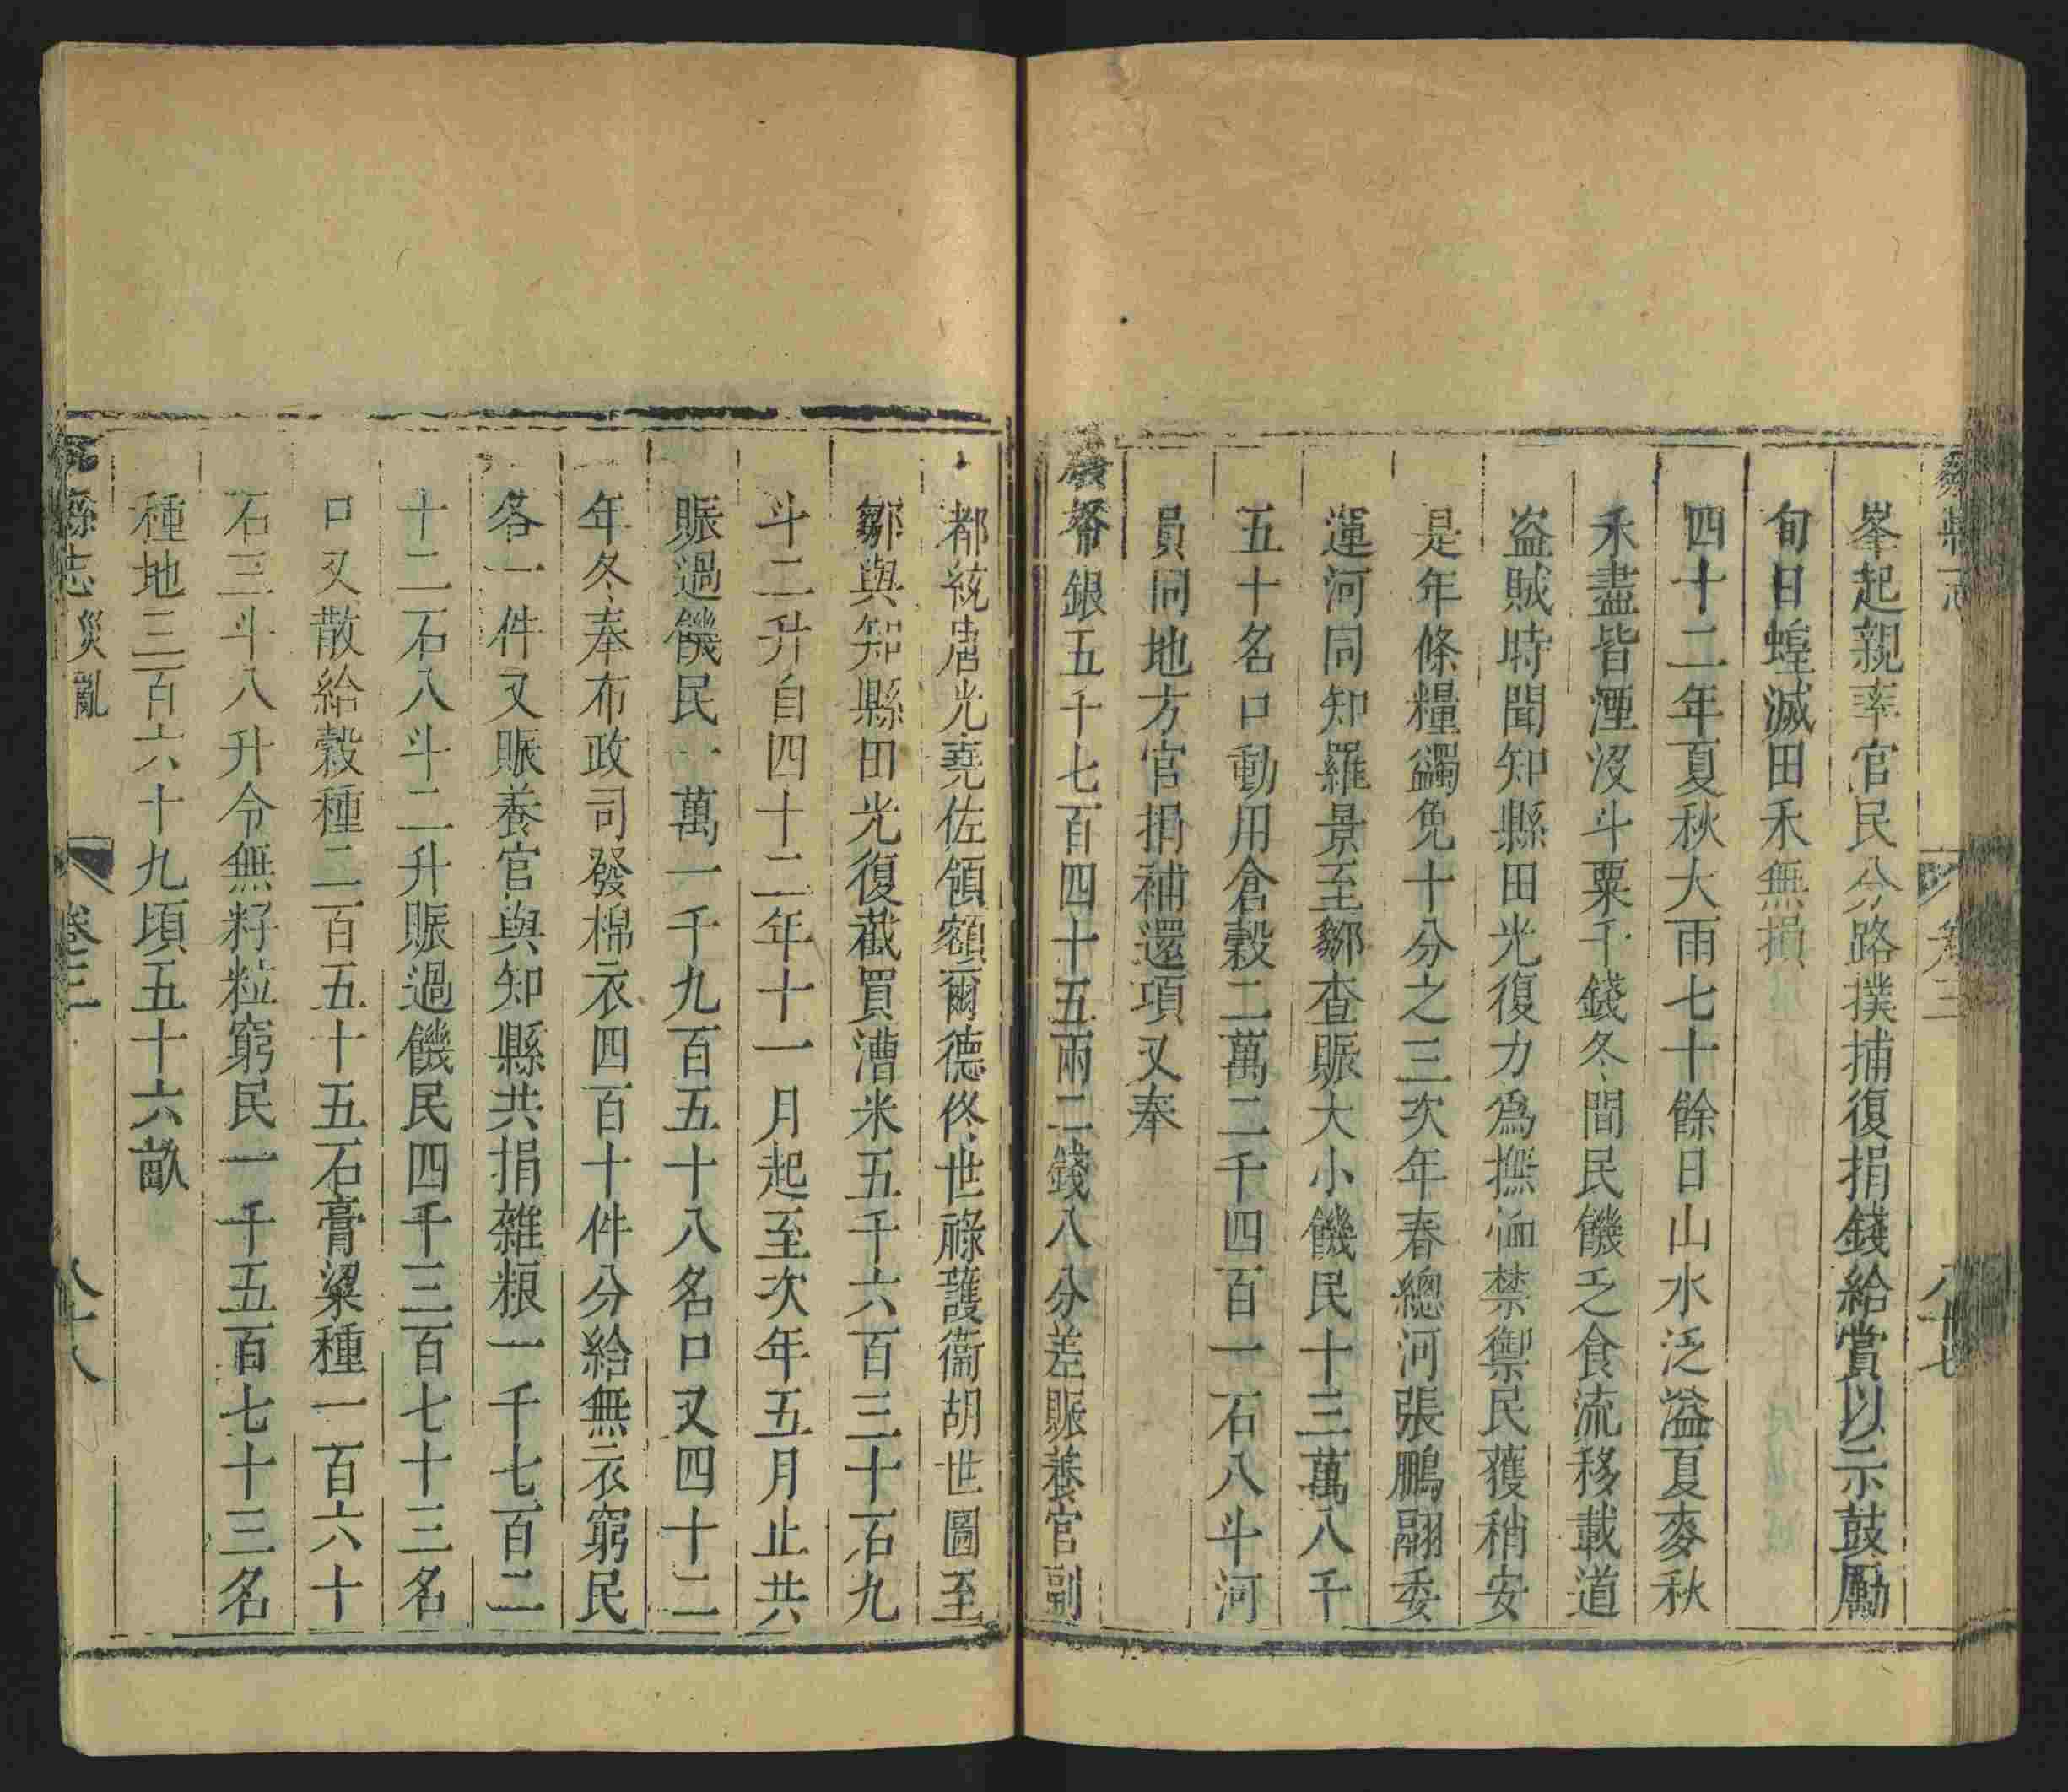 鄒縣志
卷三
八十七
峯起親率官民分路撲捕復捐錢給賞以示鼓勵
旬日蝗滅田禾無損
四十二年夏秋大雨七十餘日山水泛溢夏麥秋
禾盡皆湮沒斗粟千錢冬間民饑乏食流移載道
盗賊時聞知縣田光復力為撫恤禁禦民獲稍安
是年條糧蠲免十分之三次年春總河張鵬翮委
運河同知羅景至鄒查賑大小饑民十三萬八千
五十名口動用倉穀二萬二千四百一石八斗河
員同地方官捐補還項又奉
發帑銀五千七百四十五兩二錢八分差賑養官副
都統唐光堯佐領額爾德佟世祿護衞胡世圖至
鄒與知縣田光復截買漕米五千六百三十石九
斗二升自四十二年十一月起至次年五月止共
賑過饑民一萬一千九百五十八名口又四十二
年冬奉布政司發棉衣四百十件分給無衣窮民
各一件又賑養官與知縣共捐雜粮一千七百二
十二石八斗二升賑過饑民四千三百七十三名
口又散給穀種二百五十五石膏粱種一百六十
石三斗八升令無籽粒窮民一千五百七十三名
種地三百六十九頃五十六畝
縣志 災亂
卷三
八十八